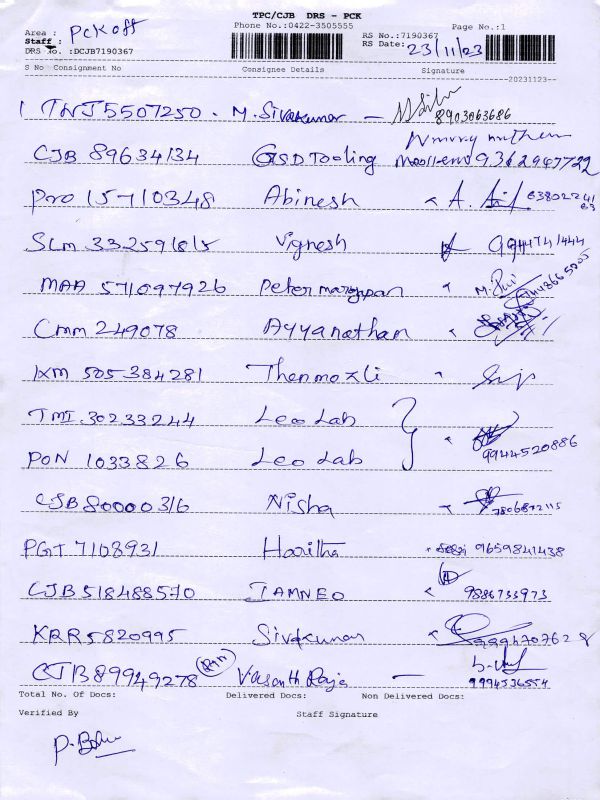 TPC/CJB DRS - PCK
Phone No.:0422-3505555 Page No.:1
Area : PCK off
Staff :
DRS No. :DCJB7190367
RS No.:7190367
RS Date: 23/11/23
S No Consignment No Consignee Details Signature
20231123
1 TNJ 5507250 . M. Sivakumar
8903063686
CJB 89634134 GSD Tooling 9362947722
Pro 15710348 Abinesh A.
SLM 332591815 Vignesh 9944741444
MAA 571097926 Peter M.
CMM 249078 Ayyanathan
IXM 505384281
TMI 30233244 Leo Lab
PON 1033826 Leo Lab 9944520886
CJB 80000316 Nisha 7806872115
PGT 7108931 Haritha 9659841438
CJB 518488570 IAMNEO 9886733973
KRR 5820995 Sivakumar
CJB 89949278 Vasanth Raja 9994536554
Total No. Of Docs: Delivered Docs: Non Delivered Docs:
Verified By Staff Signature